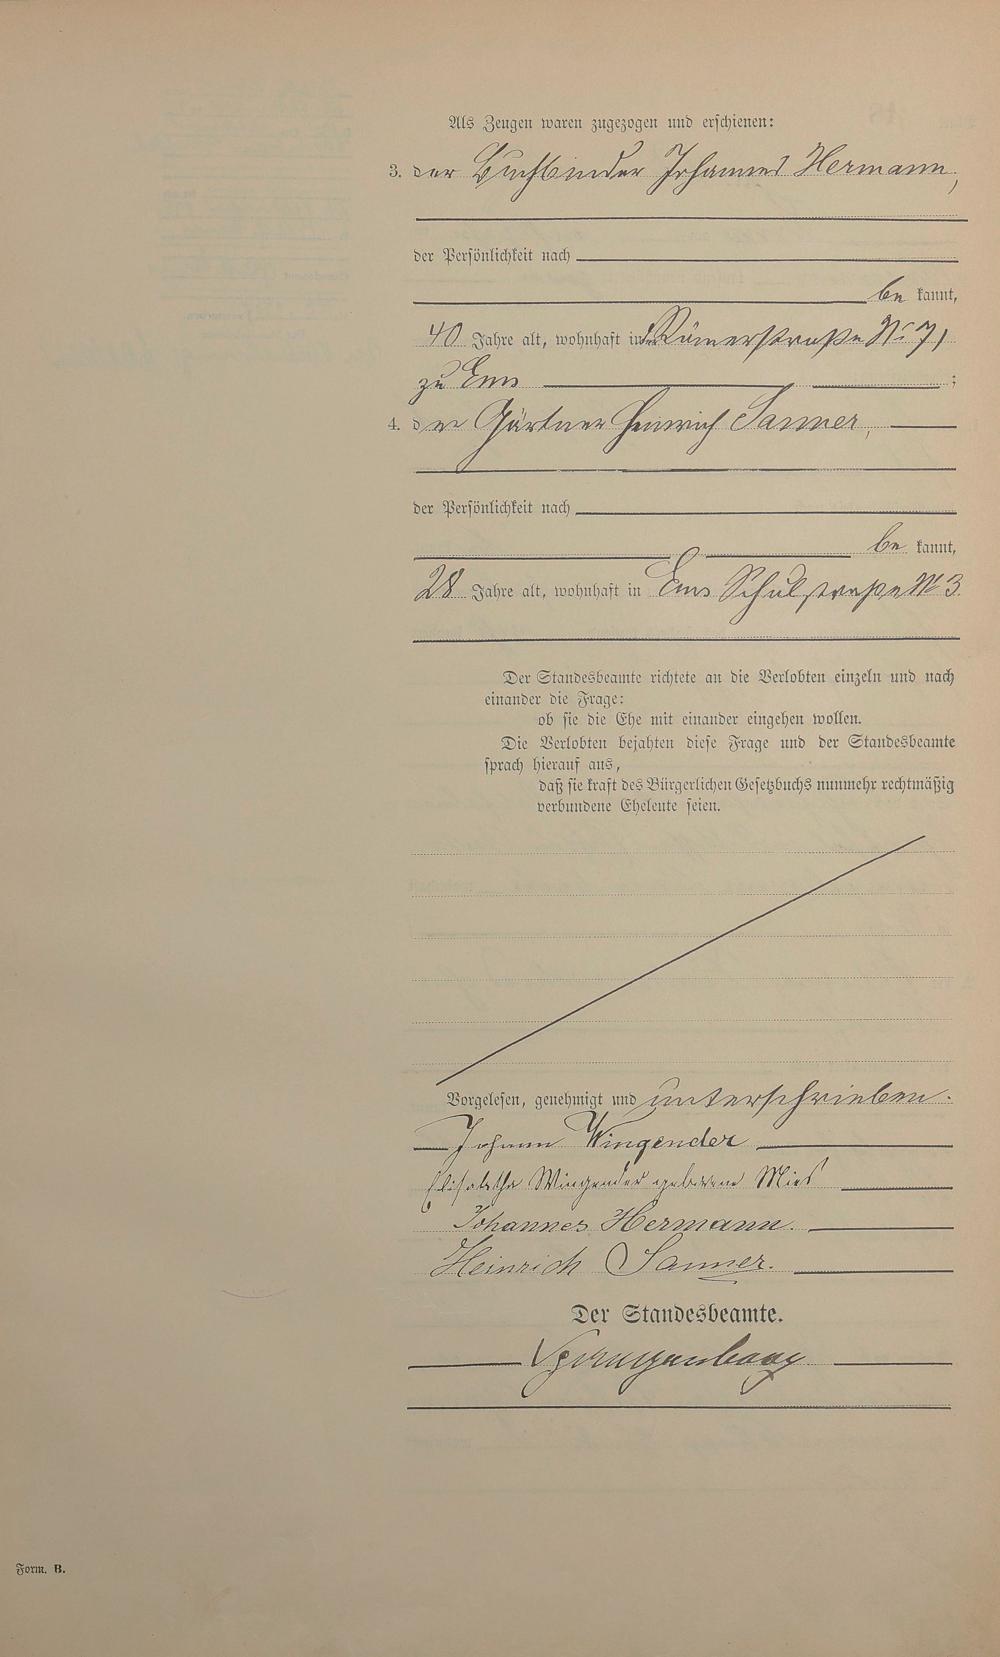 Als Zeugen waren zugezogen und erschienen:
3. der Buchbinder Johannes Hermann,
der Persönlichkeit nach
be kannt,
40 Jahre alt, wohnhaft in der Römerstraße No 71
zu Ems ;
4. der Gärtner Heinrich Sanner,
der Persönlichkeit nach
be kannt,
28 Jahre alt, wohnhaft in Ems Schulstraße No 3.
Der Standesbeamte richtete an die Verlobten einzeln und nach
einander die Frage:
ob sie die Ehe mit einander eingehen wollen.
Die Verlobten bejahten diese Frage und der Standesbeamte
sprach hierauf aus,
daß sie kraft des Bürgerlichen Gesetzbuchs nunmehr rechtmäßig
verbundene Eheleute seien.
Vorgelesen, genehmigt und unterschrieben.
Johann Wingender
Elisabetha Wingender geborene Mies
Johannes Hermann.
Heinrich Sanner.
Der Standesbeamte.
Form. B.